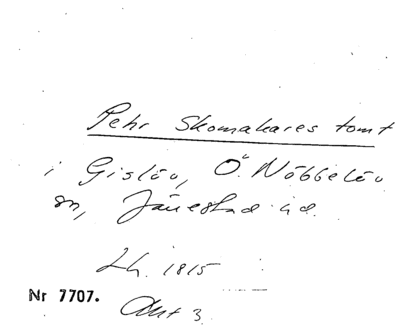 Pehr Skomakares tomt
i Gislöv, Ö. Nöbbelöv
sn, Järrestad hd.
Lh. 1815
Nr 7707.
Akt 3.